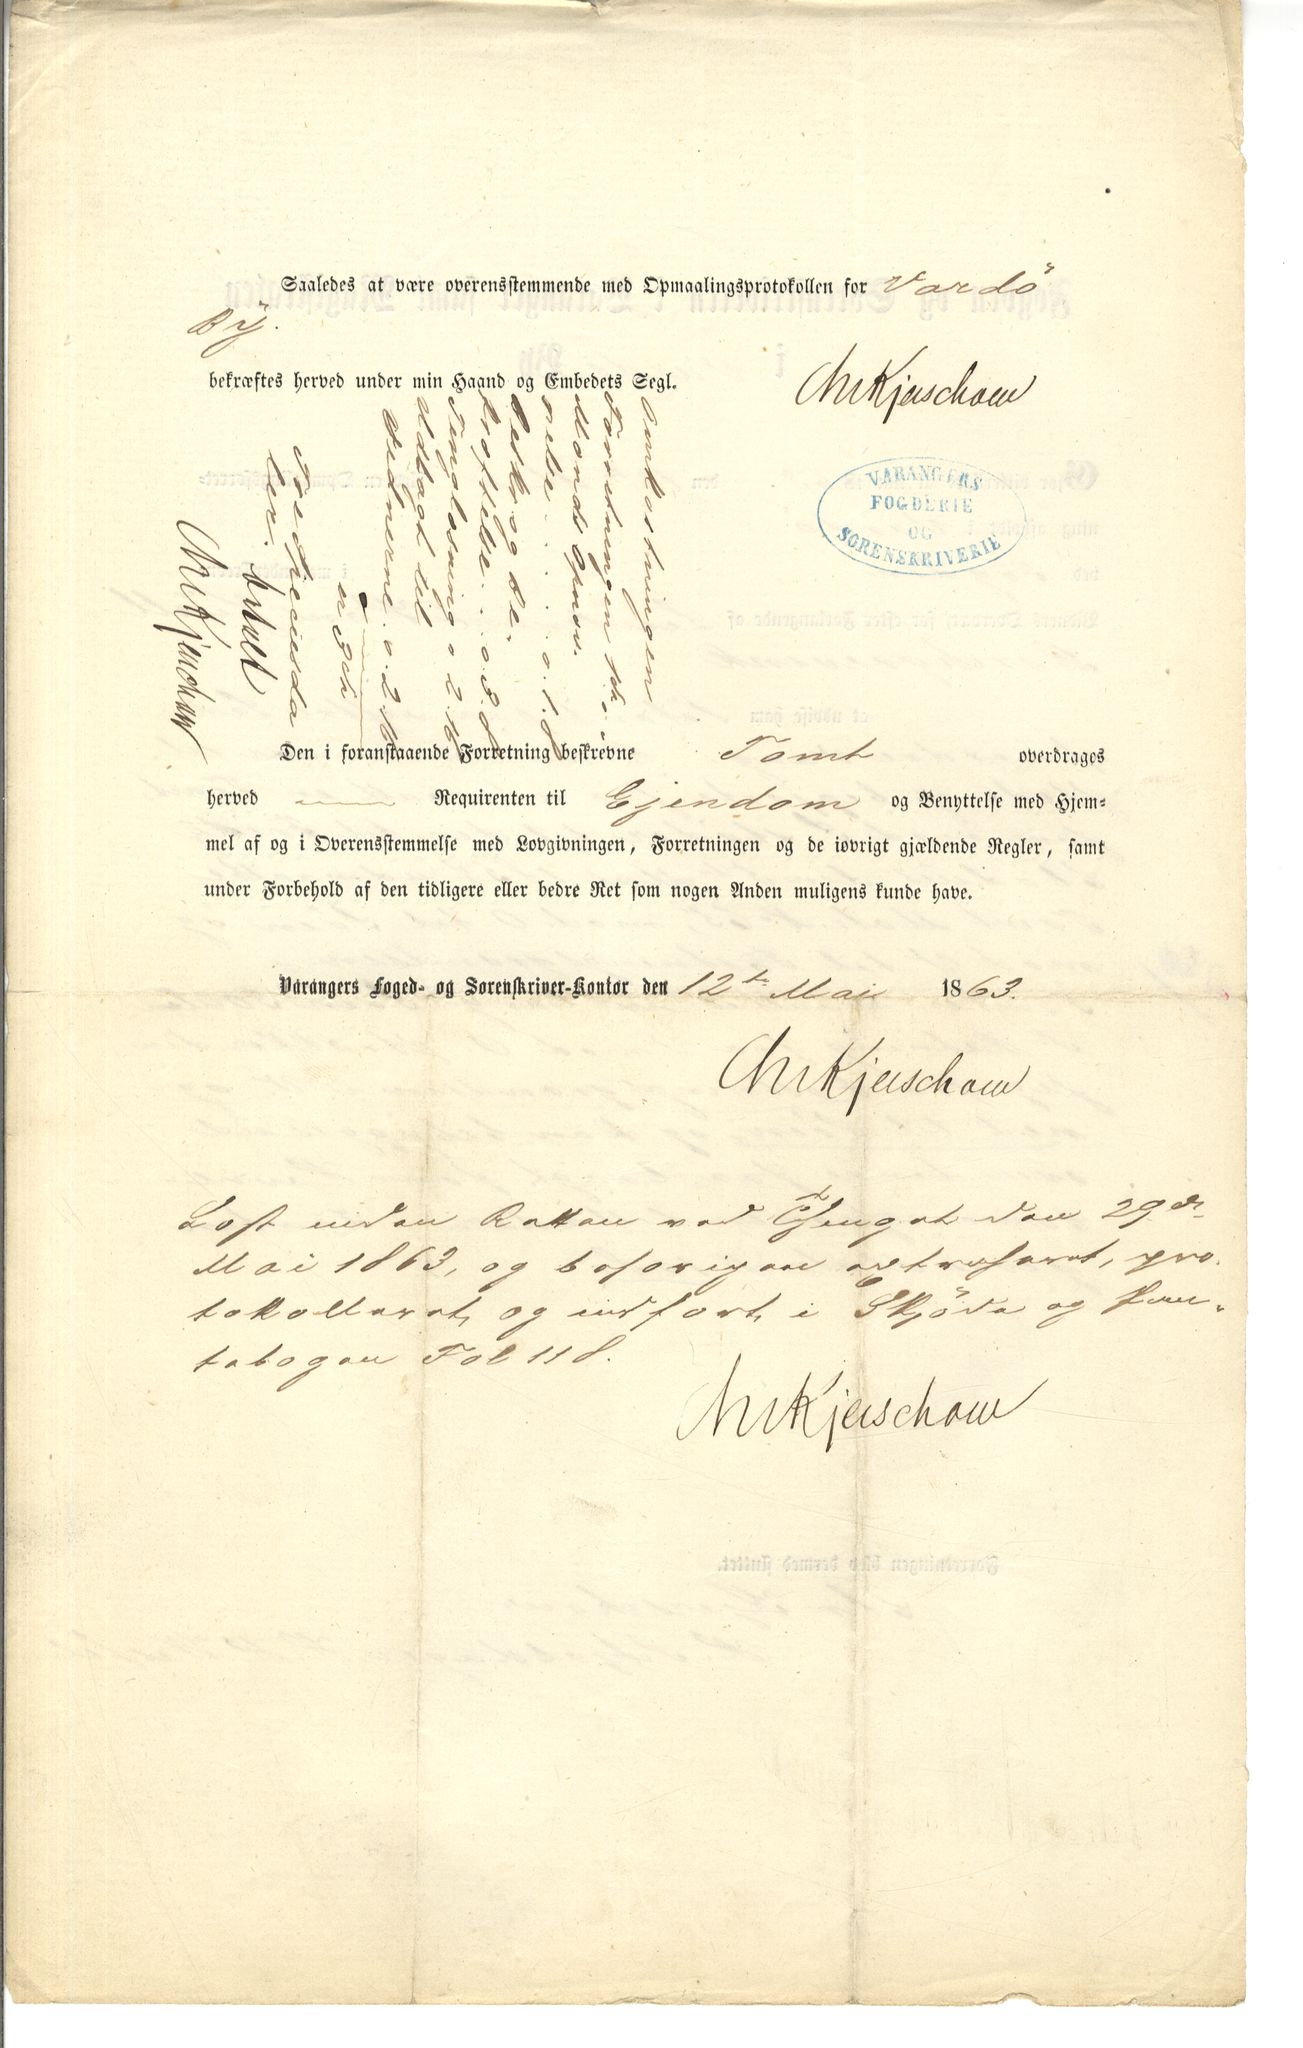 Saaledes at være overensstemmende med Opmaalingsprotokollen for Vardö
By.
bekræftes herved under min Haand og Embedets Segl.
Chr Kjerschow
VARANGERS
FOGDERIE
OG
SORENSKRIVERIE
Omkostningen
Forretningen
Mands
nelse . . . . o. 1. 8
Besk. og Be-
kræftelse . . o. 3. 8
Tinglæsning o. 2. 16
Udlagt til
Vidnerne . o. 2. 16
er
Tre Speciesda
ler. betalt
Chr Kjerschow
Den i foranstaaende Forretning beskrevne Tomt overdrages
herved Requirenten til Ejendom og Benyttelse med Hjem-
mel af og i Overensstemmelse med Lovgivningen, Forretningen og de iøvrigt gjældende Regler, samt
under Forbehold af den tidligere eller bedre Ret som nogen Anden muligens kunde have.
Varangers Foged- og Sorenskriver-Kontor den 12te Mai 1863.
Chr Kjerschow
Læst inden Retten ved Thinget den 29de
Mai 1863, og besørigen extraheret, pro-
tokolleret og indført i Skjöde og Pan-
tebogen Fol 118.
Chr Kjerschow
Forretningen blev dermed sluttet.